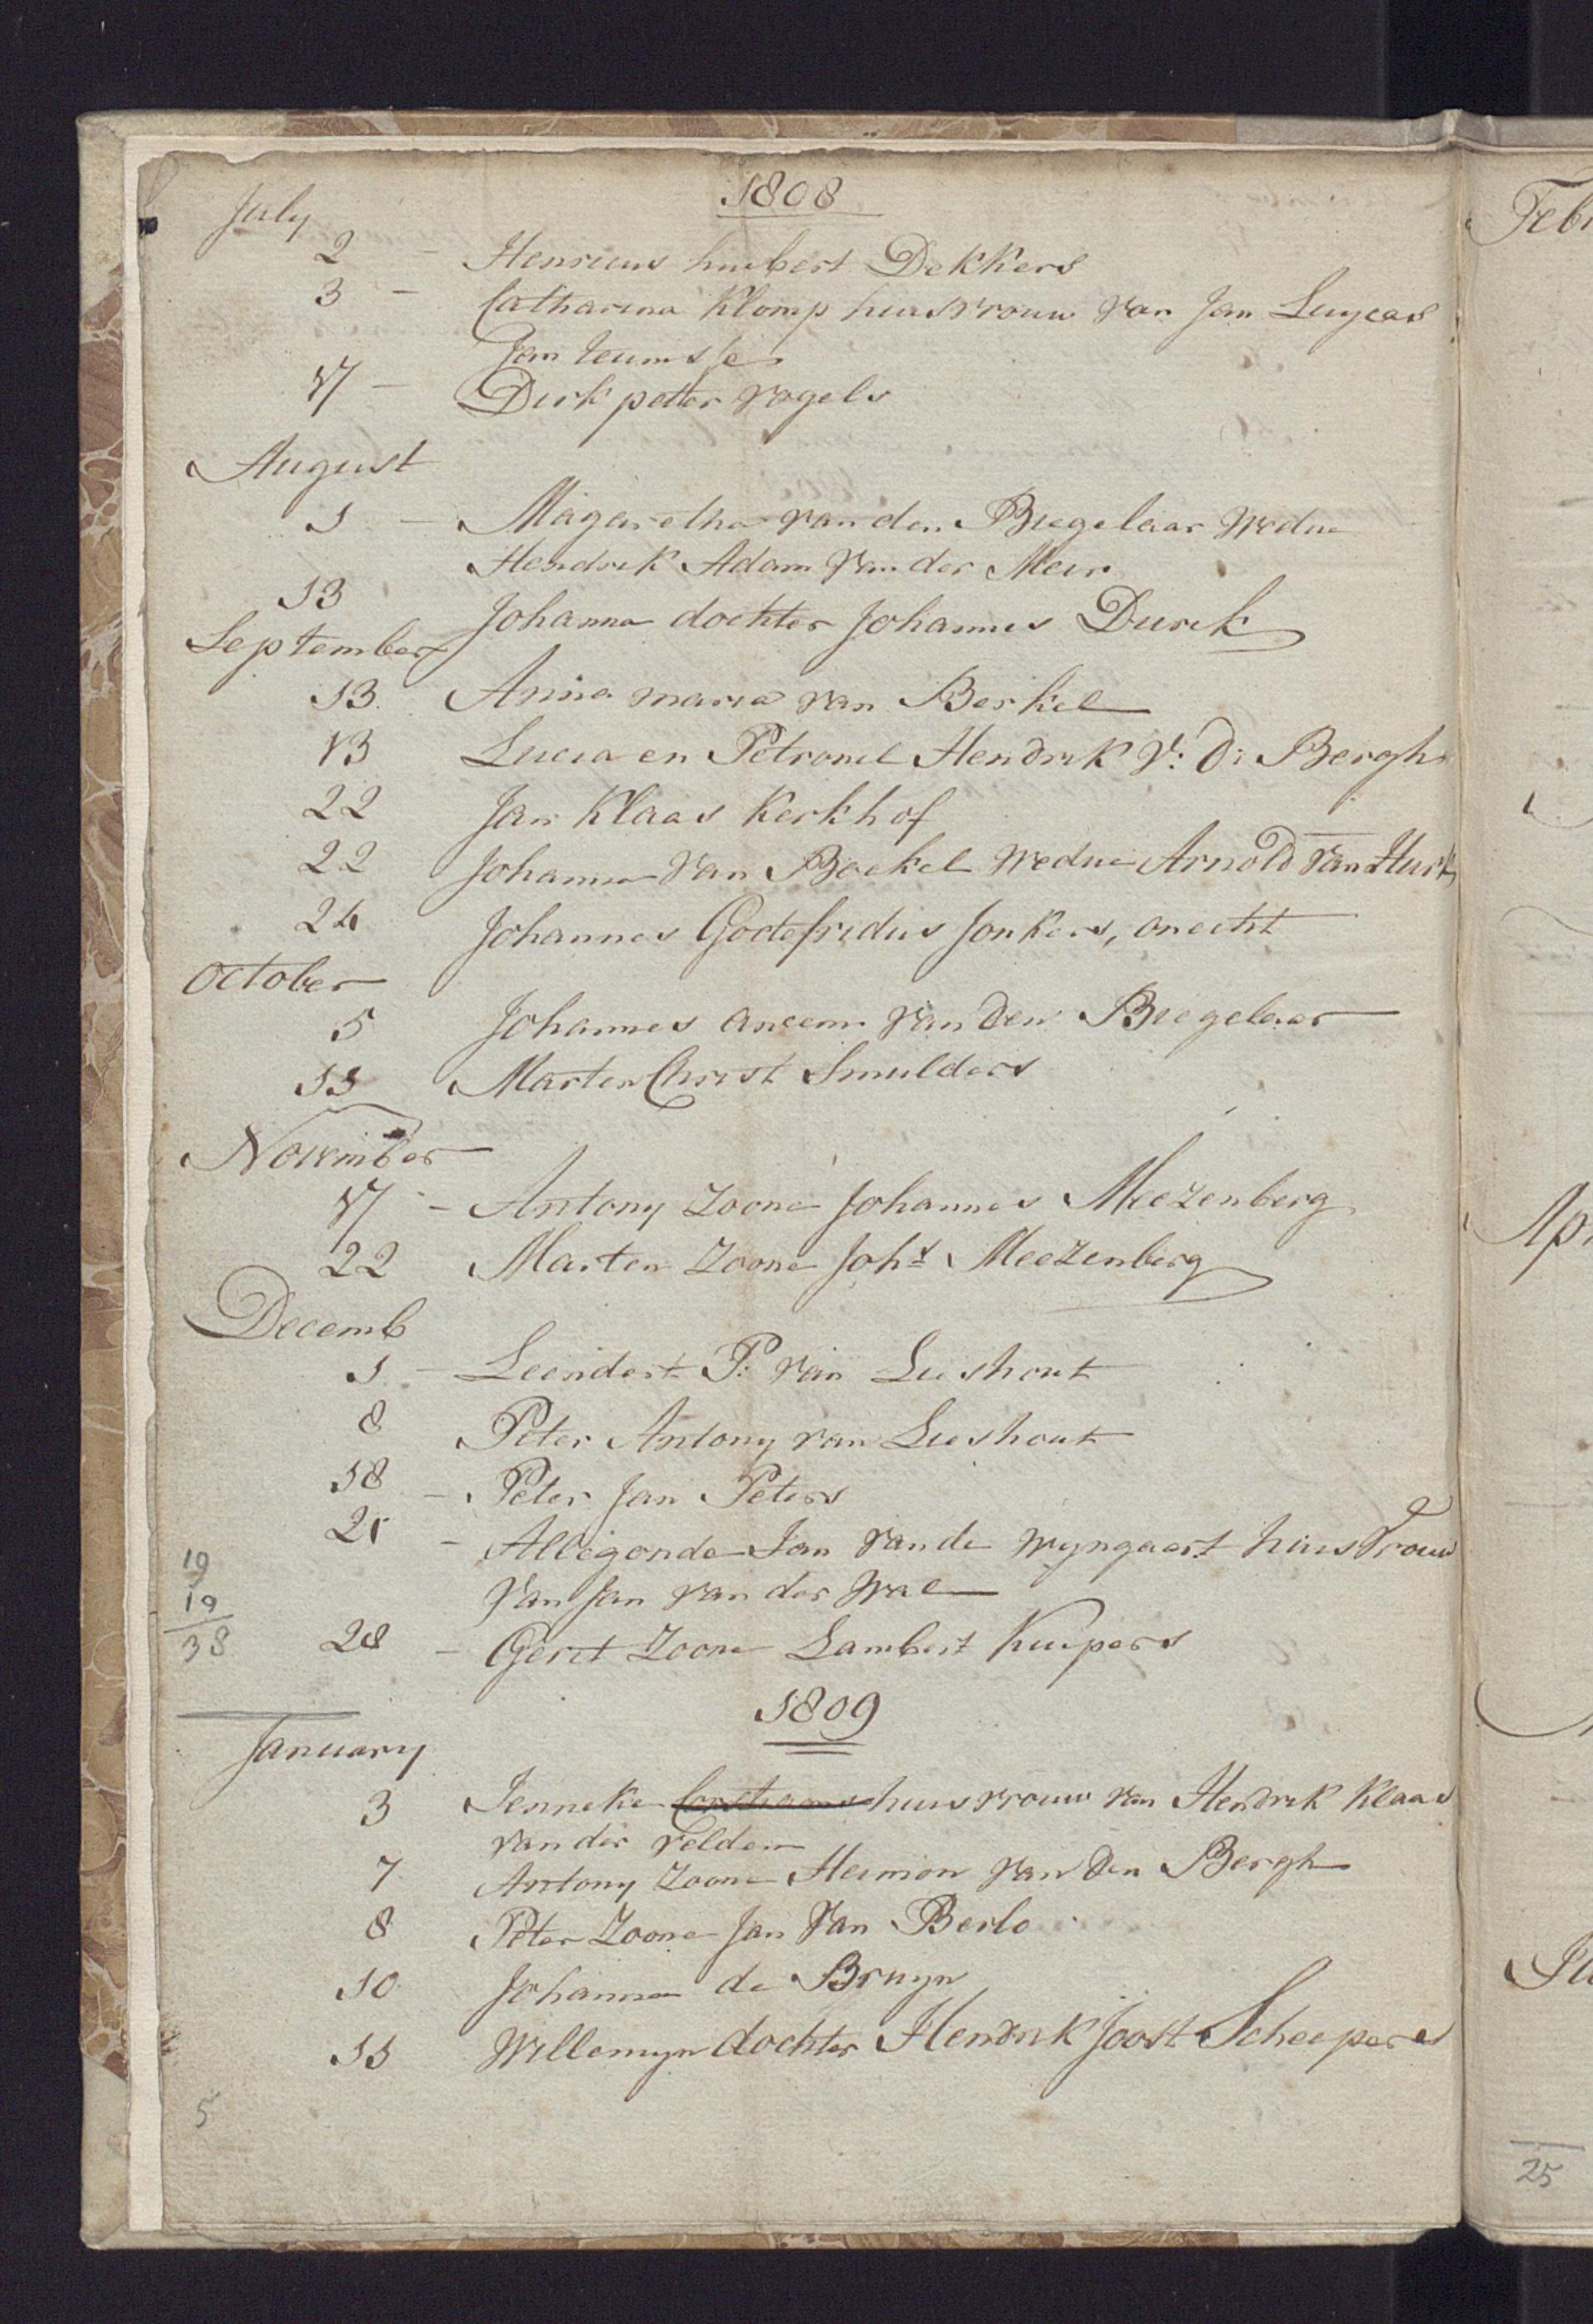 1808
July
2 - Henricus huibert Dekkers
3 - Catharina Klomp huisvrouw van Jan Luycas
Jan teunisse
17 - Dirk petter vogels
August
1 - Magaretha van den Biegelaar Wedue
Hendrik Adam van der Meer
13 Johanna dochter Johannes Durck
September
13 Anna maria van Berkel
13 Lucia en Petronel Hendrik V: D: Bergh
22 Jan Klaas Kerkhof
22 Johanna van Boekel Wedue Arnold van Hurk
24 Johannes Godefridus Jonkers, onecht
October
5 Johannes Ancem van Den Biegelaar
11 Marten Christ Smulders
November
17 - Antony Zoone Johannes Meezenberg
22 Marten Zoone Johs Meezenberg
Decemb
1 - Leendert P: van Lieshout
8 Peter Antony van Lieshout
18 - Peter Jan Peters
21 - Allegonda Jan van de Wyngaert huis Vrouw
van Jan van der Wal
28 - Geret Zoone Lambert Kuipers
19
19
38
1809
January
3 Jenneke huisvrouw van Hendrik Klaas
van der velden
7 Antony Zoone Heimon van Den Bergh
8 Peter Zoone Jan Van Berlo
10 Johanna de Bruyn
11 Willemyn dochter Hendrik Joost Scheepers
5
25